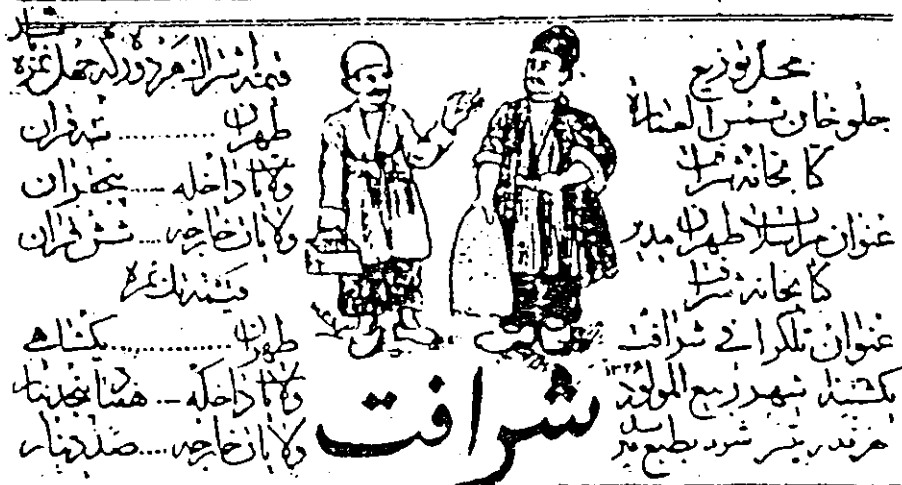 محل توزیع
جلو خان شمس العماره
کتابخانه شرافت
عنوان مراسلات طهران مدیر
کتابخانه شرافت
عنوان تلگرافی شرافت
یکشنبه شهر ربیع المولود ۱۳۲۶
هر نمره
شرافت
قیمت اشتراک هر دوره که چهل نمره
طهران ........ سه قران
ولایات داخله .... پنجقران
ولایات خارجه ... شش قران
قیمت تک نمره
طهران ............ یکشاهی
ولایات داخله ...
ولایات خارجه .... صد دینار